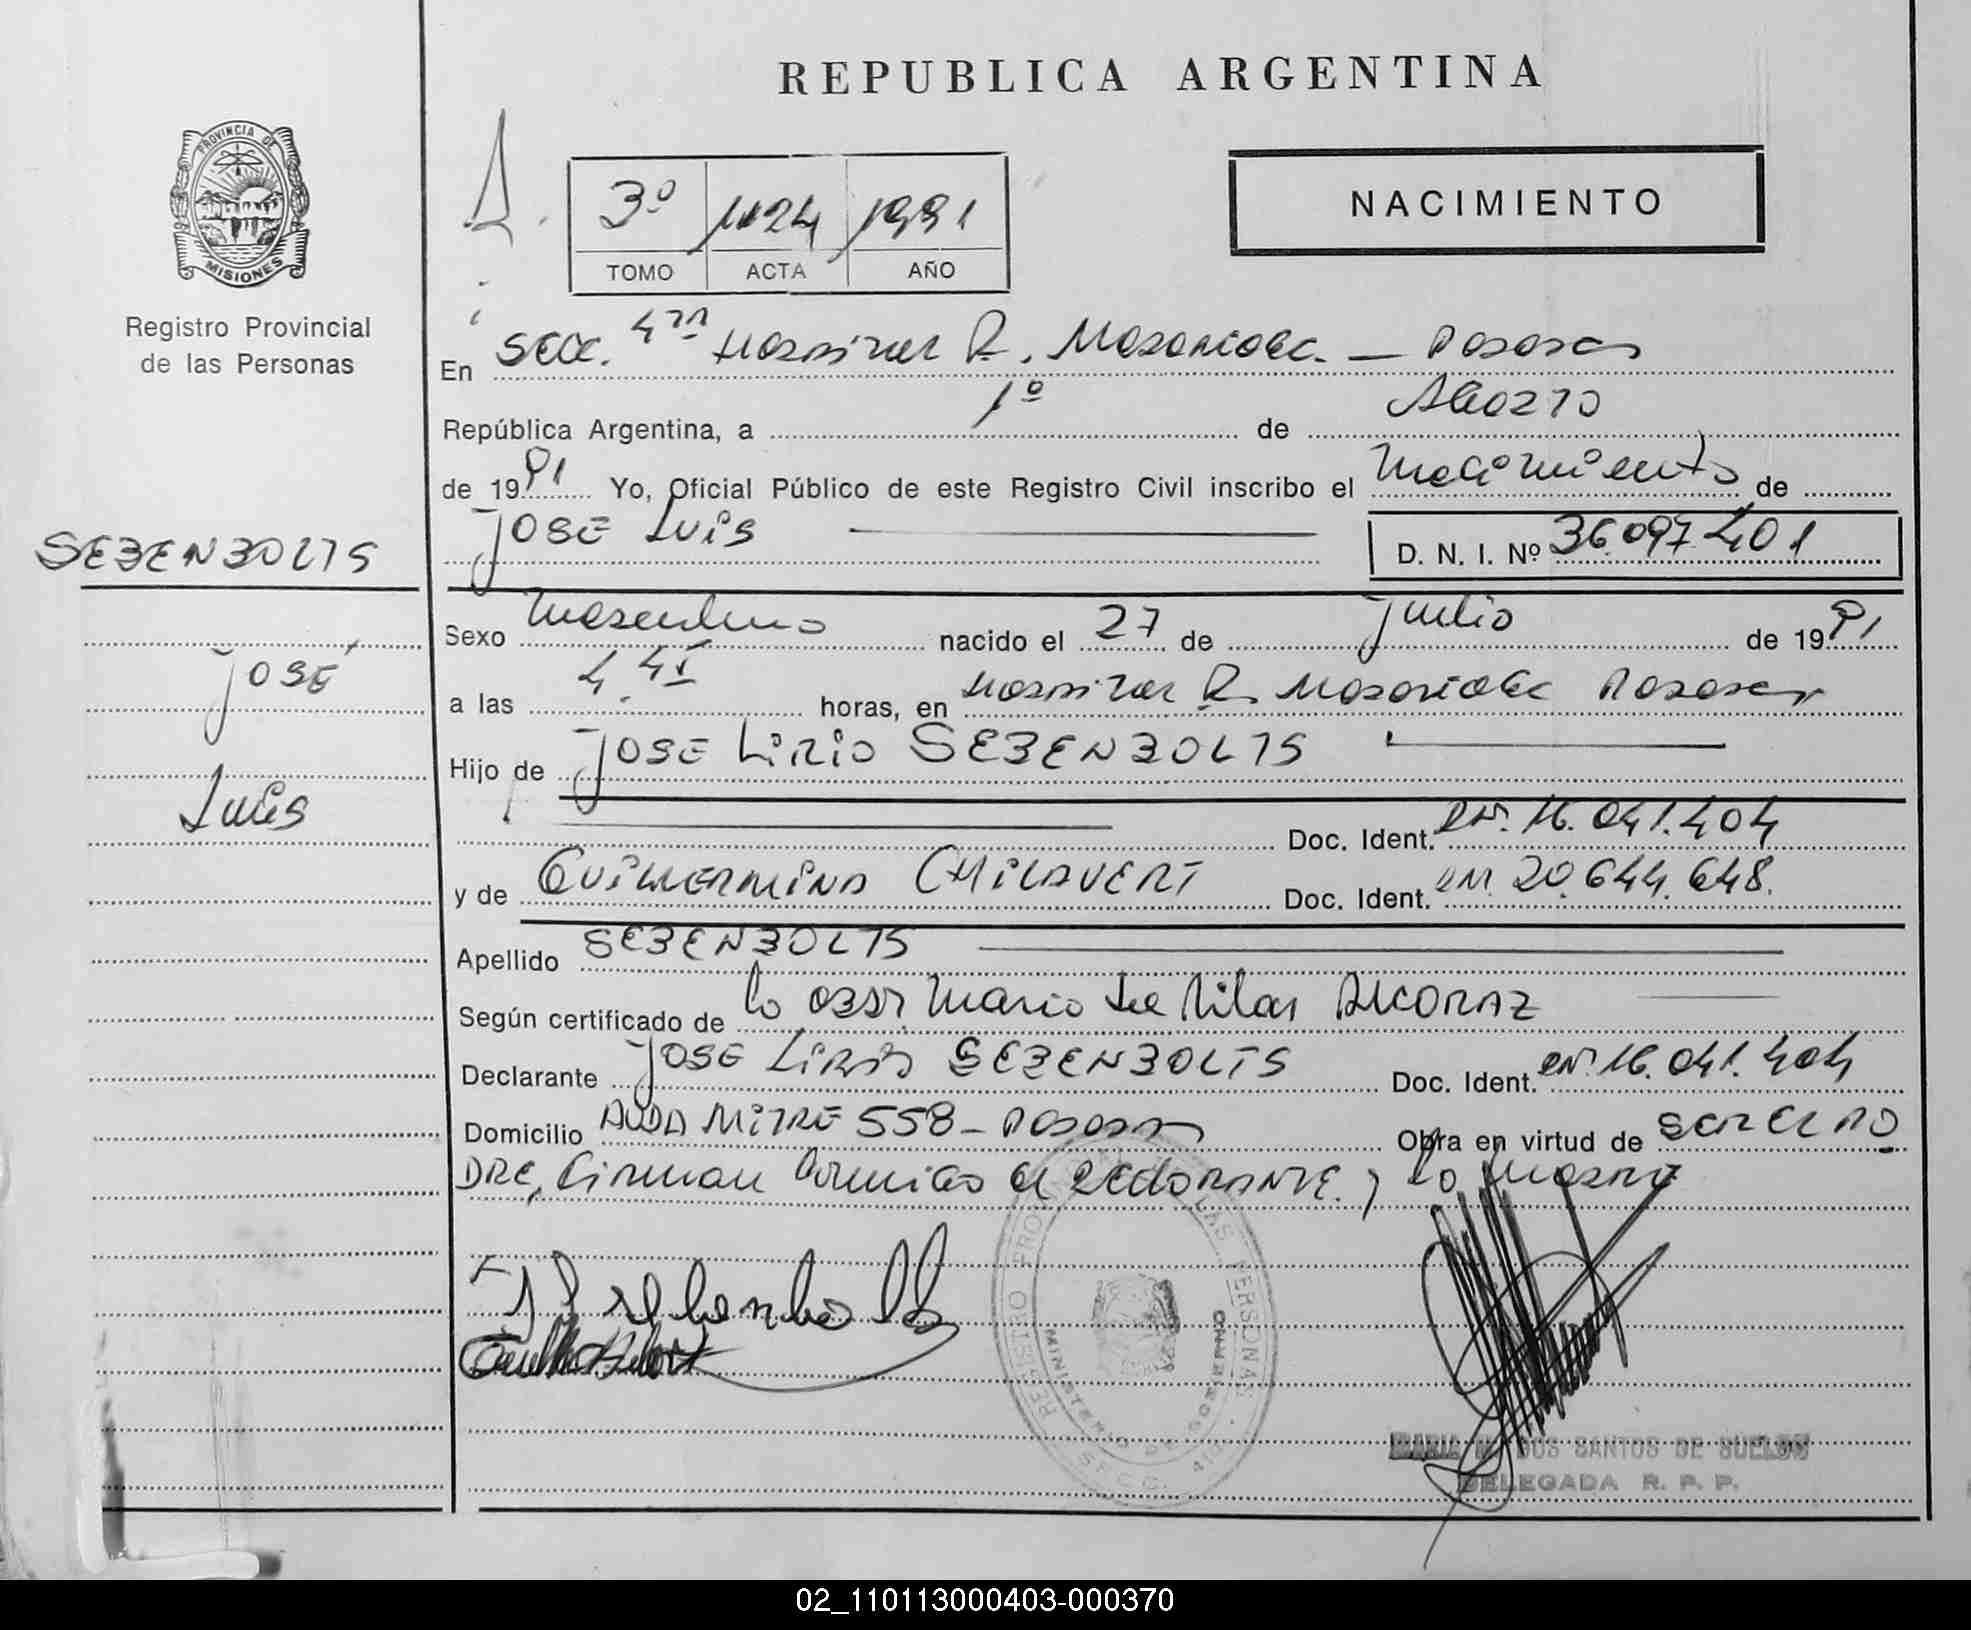 REPUBLICA ARGENTINA
PROVINCIA DE
MISIONES
Registro Provincial
de las Personas
3º 1124 1991
TOMO ACTA AÑO
NACIMIENTO
En Secc. 4ta Hospital R. Madariaga. — Posadas
República Argentina, a 1º de Agosto
de 1991 Yo, Oficial Público de este Registro Civil inscribo el nacimiento de
JOSE LUIS
D. N. I. Nº 36.097.401
SEZENBOLTS
JOSÉ
Luis
Sexo masculino nacido el 27 de julio de 1991
a las 4.45 horas, en Hospital R. Madariaga Posadas
Hijo de JOSE LIRIO SEZENBOLTS
Doc. Ident. DNI. 16.041.404
y de GUILLERMINA CHILAVERT Doc. Ident. DNI. 20.644.648.
Apellido SEZENBOLTS
Según certificado de la obst. Maria del Pilar ALCORAZ
Declarante JOSE LIRIO SEZENBOLTS Doc. Ident. DNI. 16.041.404
Domicilio AVDA MITRE 558 - Posadas Obra en virtud de SER EL PA
DRE, firman conmigo el declarante y la madre
REGISTRO PROVINCIAL DE LAS PERSONAS
MINISTERIO DE GOBIERNO
SECC. 4ta
MARIA M. DOS SANTOS DE SUELDO
DELEGADA R. P. P.
02_110113000403-000370